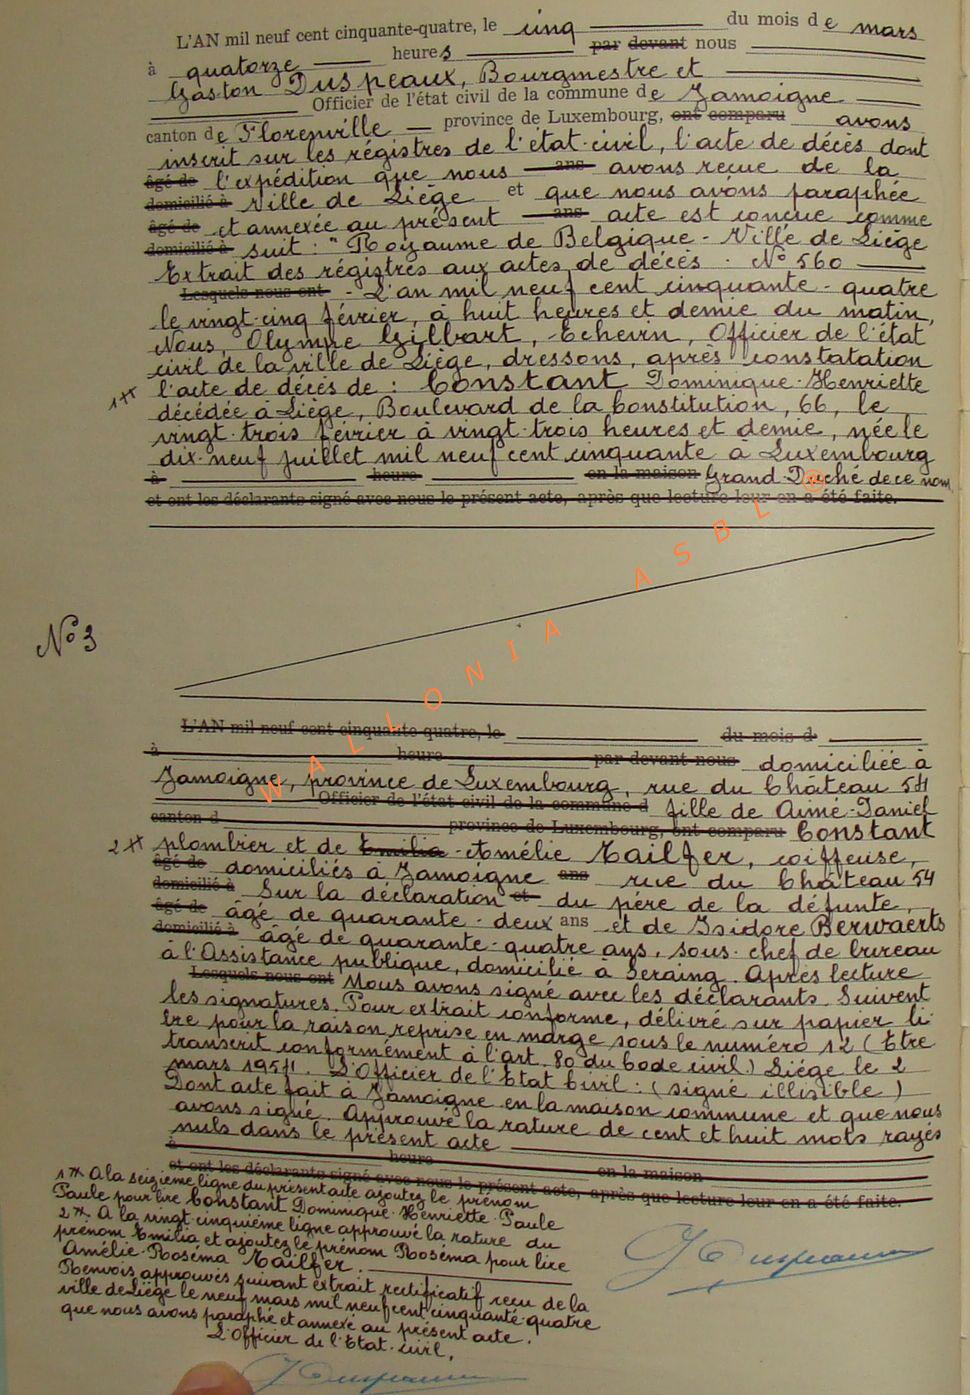 L'AN mil neuf cent cinquante-quatre, le cinq du mois de mars
à quatorze heures par devant nous
Gaston Duspeaux, Bourgmestre et
Officier de l'état civil de la commune de Jamoigne
canton de Florenville province de Luxembourg, ont comparu avons
inscrit sur les régistres de l'état-civil, l'acte de décès dont
âgé de l'expédition que nous ans avons reçue de la
domicilié à Ville de Liège et que nous avons paraphée
âgé de et annexée au présent ans acte est conçue comme
domicilié à suit : "Royaume de Belgique - Ville de Liège
Extrait des régistres aux actes de décès - N° 560
Lesquels nous ont - L'an mil neuf cent cinquante-quatre
le vingt-cinq février, à huit heures et demie du matin,
Nous, Olympe Gilbart, Echevin, Officier de l'état
civil de la ville de Liège, dressons, après constatation
1xx l'acte de décès de : Constant Dominique-Henriette
décédée à Liège, Boulevard de la Constitution, 66, le
vingt-trois février à vingt-trois heures et demie, née le
dix-neuf juillet mil neuf cent cinquante à Luxembourg
à heure en la maison Grand-Duché de ce nom
et ont les déclarants signé avec nous le présent acte, après que lecture leur en a été faite.
N° 3
WALLONIA ASBL ®
L'AN mil neuf cent cinquante-quatre, le du mois d
à heure par devant nous domiciliée à
Jamoigne, province de Luxembourg, rue du Château 54
Officier de l'état civil de la commune d fille de Aimé-Daniel
canton d province de Luxembourg, ont comparu Constant
2xx plombier et de Emilia-Amélie Mailfer, coiffeuse,
âgé de domiciliés à Jamoigne ans rue du Château 54
domicilié à Sur la déclaration et du père de la défunte,
âgé de âgé de quarante-deux ans et de Isidore Berwaerts
domicilié à âgé de quarante-quatre ans, sous-chef de bureau
à l'Assistance publique, domicilié à Seraing. Après lecture
Lesquels nous ont Nous avons signé avec les déclarants. Suivent
les signatures. Pour extrait conforme, délivré sur papier li-
bre pour la raison reprise en marge sous le numéro 12 (Etre
transcrit conformément à l'art. 80 du Code civil.) Liége le 2
mars 1954. L'Officier de l'Etat Civil : (signé illisible)
Dont acte fait à Jamoigne en la maison commune et que nous
avons signé. Approuvé la rature de cent et huit mots rayés
nuls dans le présent acte
à heure en la maison
et ont les déclarants signé avec nous le présent acte, après que lecture leur en a été faite.
1xx A la seizième ligne du présent acte ajoutez le prénom
Paule pour lire Constant Dominique-Henriette-Paule
2xx A la vingt cinquième ligne approuvé la rature du
prénom Emilia et ajoutez le prénom Roséma pour lire
Amélie-Roséma Mailfer.
Renvois approuvés suivant extrait rectificatif reçu de la
ville de Liège le neuf mars mil neuf cent cinquante quatre
que nous avons paraphé et annexé au présent acte.
L'Officier de l'Etat-civil,